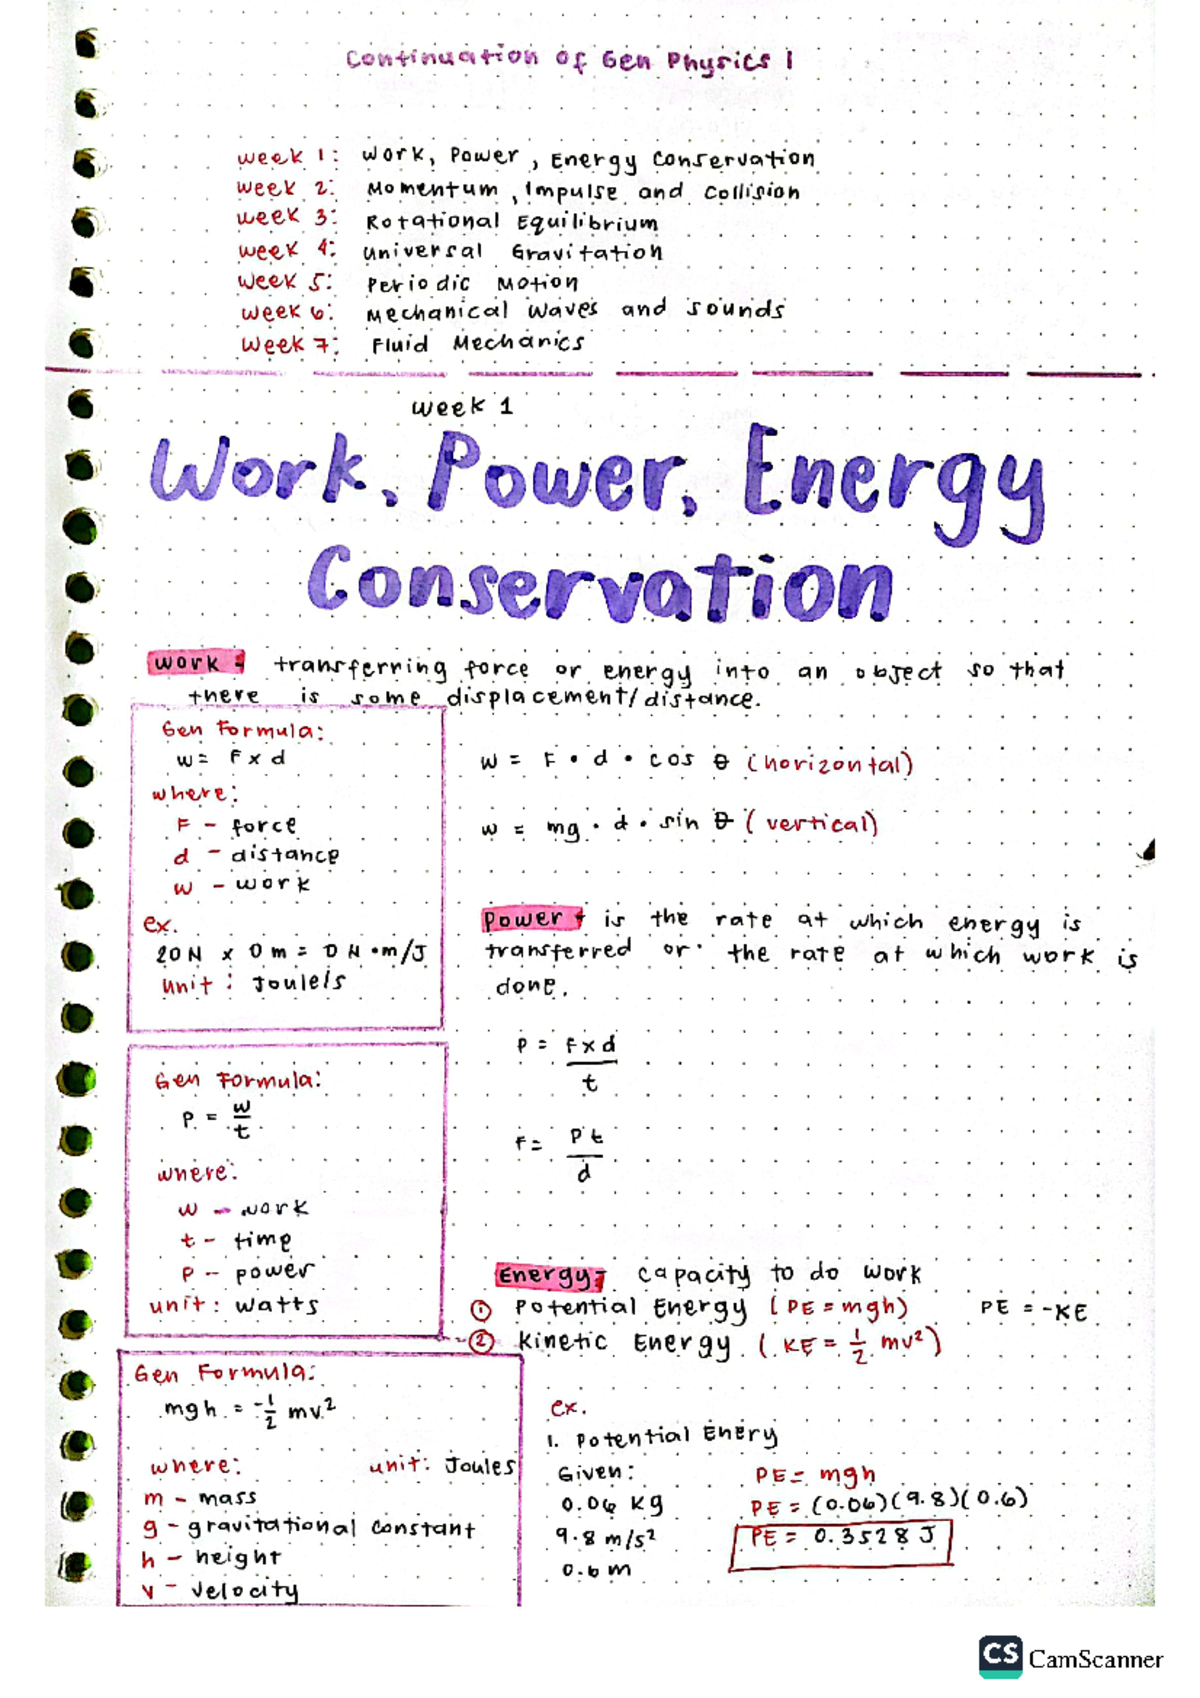 Continuation of Gen Physics 1
week 1: Work, Power, Energy Conservation
week 2: Momentum, Impulse and Collision
week 3: Rotational Equilibrium
week 4: Universal Gravitation
week 5: Periodic Motion
week 6: Mechanical Waves and Sounds
week 7: Fluid Mechanics
week 1
Work, Power, Energy
Conservation
work - transferring force or energy into an object so that
there is some displacement/distance.
Gen Formula:
w = F x d
where:
F - force
d - distance
w - work
ex.
20N x 0m = 0 N•m/J
unit: Joules
w = F • d • cos θ (horizontal)
w = mg • d • sin θ (vertical)
Power - is the rate at which energy is
transferred or the rate at which work is
done.
P = Fxd/t
F = Pt/d
Gen Formula:
P = w/t
where:
w - work
t - time
p - power
unit: watts
Energy - capacity to do work
① Potential Energy (PE = mgh) PE = -KE
② Kinetic Energy (KE = 1/2 mv²)
Gen Formula:
mgh = -1/2 mv²
where: unit: Joules
m - mass
g - gravitational constant
h - height
v - velocity
ex.
1. Potential Enery
Given:
0.06 kg
9.8 m/s²
0.6 m
PE = mgh
PE = (0.06)(9.8)(0.6)
PE = 0.3528 J
CS CamScanner